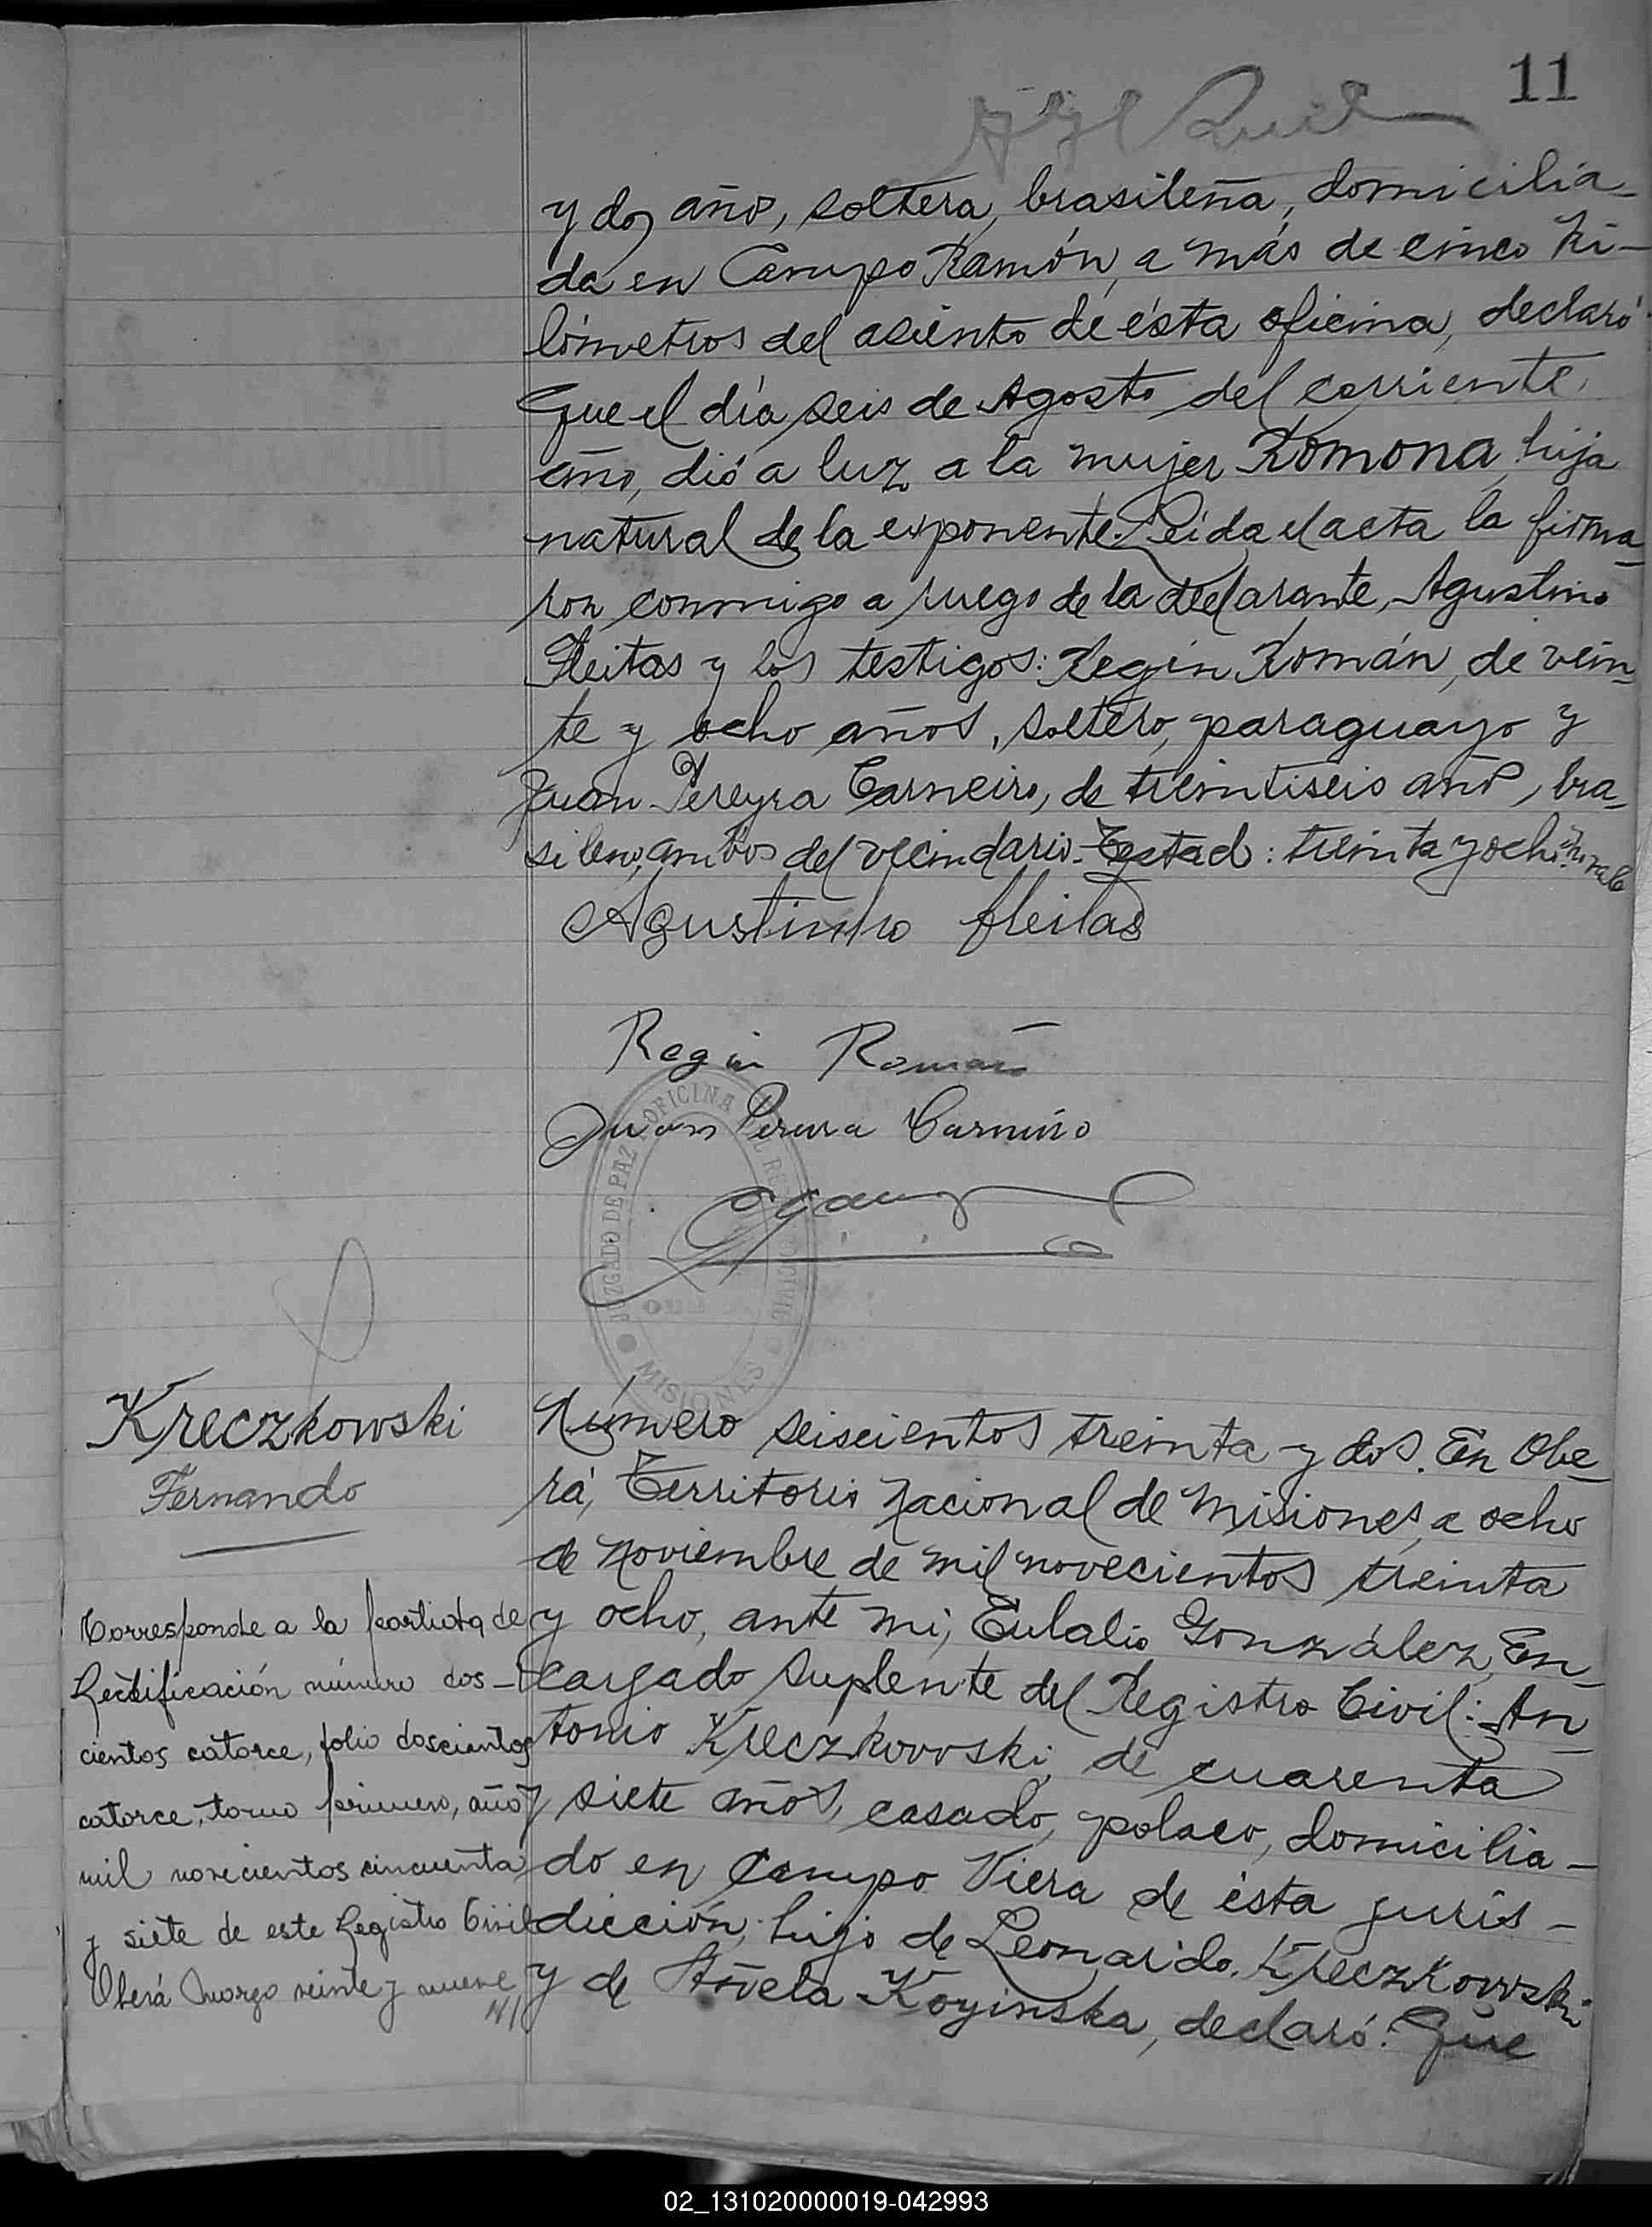 11
y dos años, soltera, brasileña, domicilia-
da en Campo Ramón, a más de cinco ki-
lómetros del asiento de ésta oficina, declaró:
Que el día seis de Agosto del corriente
año, dió a luz a la mujer Romona, hija
natural de la exponente. Leida el acta la firma-
ron conmigo a ruego de la declarante, Agustino
Fleitas y los testigos: Regin Román, de vein-
te y ocho años, soltero, paraguayo y
Juan Pereyra Carneiro, de treintiseis años, bra-
sileno, ambos del vecindario. Testad: treinta y ocho: No vale
Agustinho fleitas
Regin Román
Juan Pereira Carneiro
JUZGADO DE PAZ OFICINA
CIVIL
MISIONES
Kreczkowski
Fernando
Corresponde a la partida de
Rectificación número dos-
cientos catorce, folio doscientos
catorce, tomo primero, año
mil novecientos cincuenta
y siete de este Registro Civil
Oberá Marzo veinte y nueve
Número seiscientos treinta y dos. En Obe-
rá, Territorio Nacional de Misiones, a ocho
de Noviembre de mil novecientos treinta
y ocho, ante mi, Eulalio González, En-
cargado Suplente del Registro Civil: An-
tonio Kreczkowski, de cuarenta
y siete años, casado, polaco, domicilia-
do en Campo Viera de ésta juris-
dicción, hijo de Leonardo Kreczkowski
y de Koyinska, declaró: Que
02_131020000019-042993